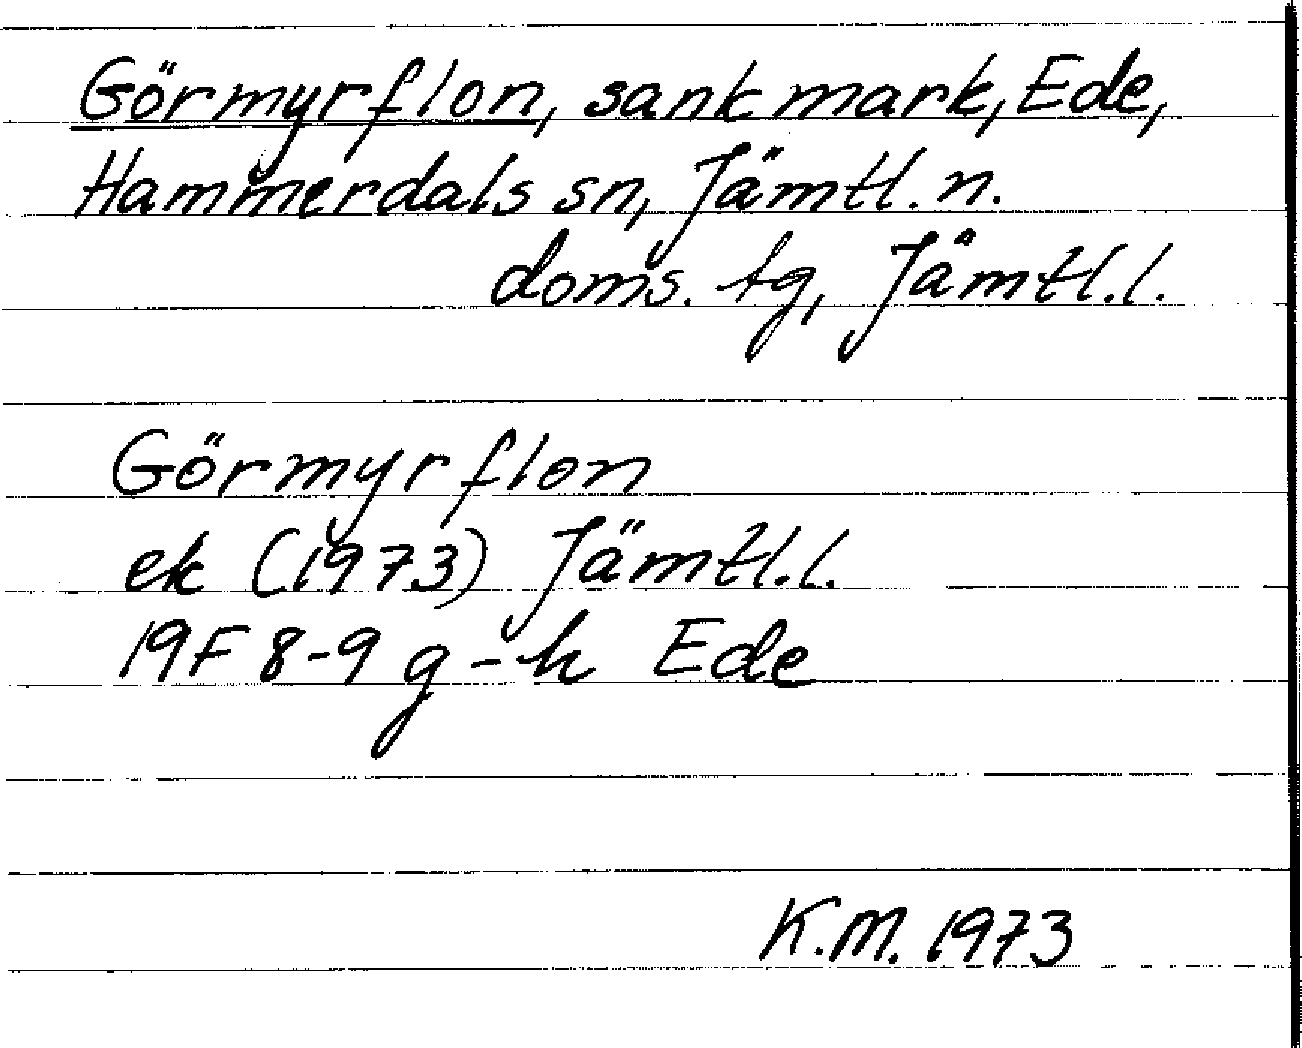 Görmyrflon, sank mark, Ede,
Hammerdals sn, Jämtl. n.
doms. tg, Jämtl. l.
Görmyrflon
ek (1973) Jämtl. l.
19F 8-9 g-h Ede
K.M. 1973